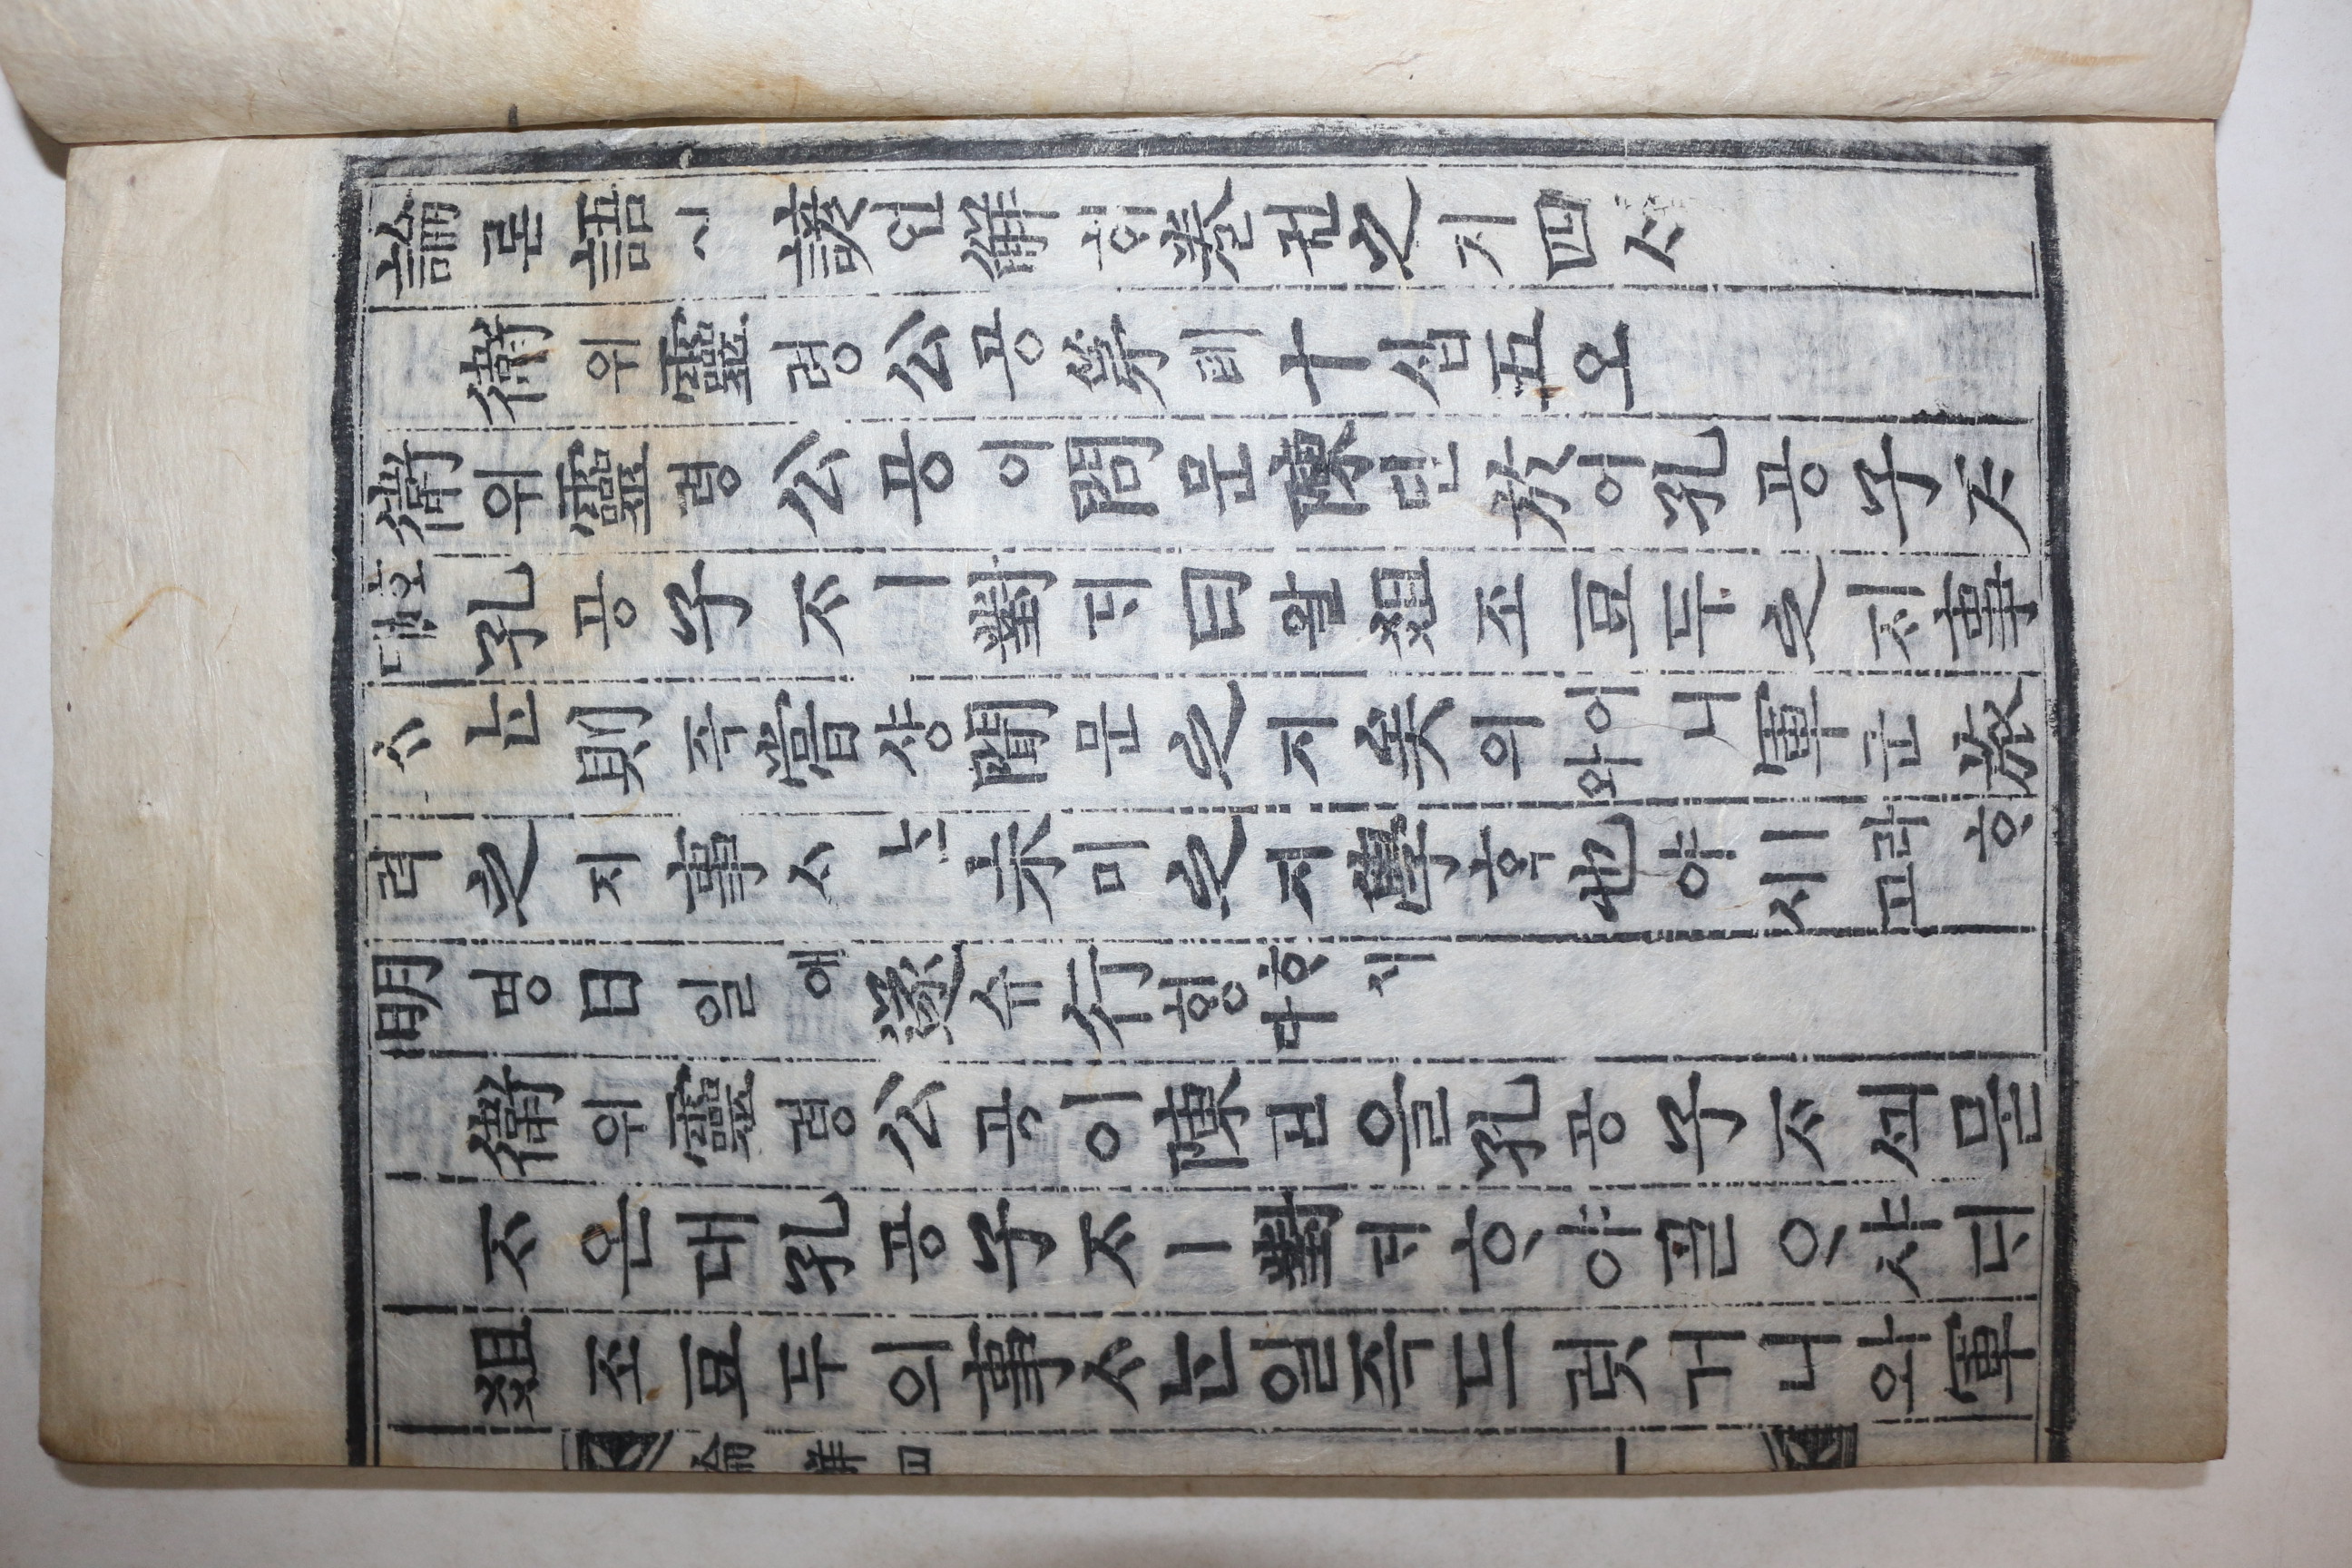 論론語어諺언解ᄒᆡ卷권之지四ᄉᆞ
衛위靈령公공第뎨十십五오
衛위靈령公공이問문陳딘於어孔공子ᄌᆞ
ᄒᆞ신대孔공子ᄌᆞㅣ對ᄃᆡ曰왈俎조豆두之지事
ᄉᆞᄂᆞᆫ則즉嘗샹聞문之지矣의어니와軍군旅
려之지事ᄉᆞᄂᆞᆫ未미之지學ᄒᆞᆨ也야ㅣ라ᄒᆞ시고
明명日일에遂슈行ᄒᆡᆼᄒᆞ시다
衛위靈령公공이陳딘을孔공子ᄌᆞᄭᅴ묻
ᄌᆞ온대孔공子ᄌᆞㅣ對ᄃᆡᄒᆞ야ᄀᆞᆯᄋᆞ샤ᄃᆡ
俎조豆두의事ᄉᆞᄂᆞᆫ일즉드럿거니와軍